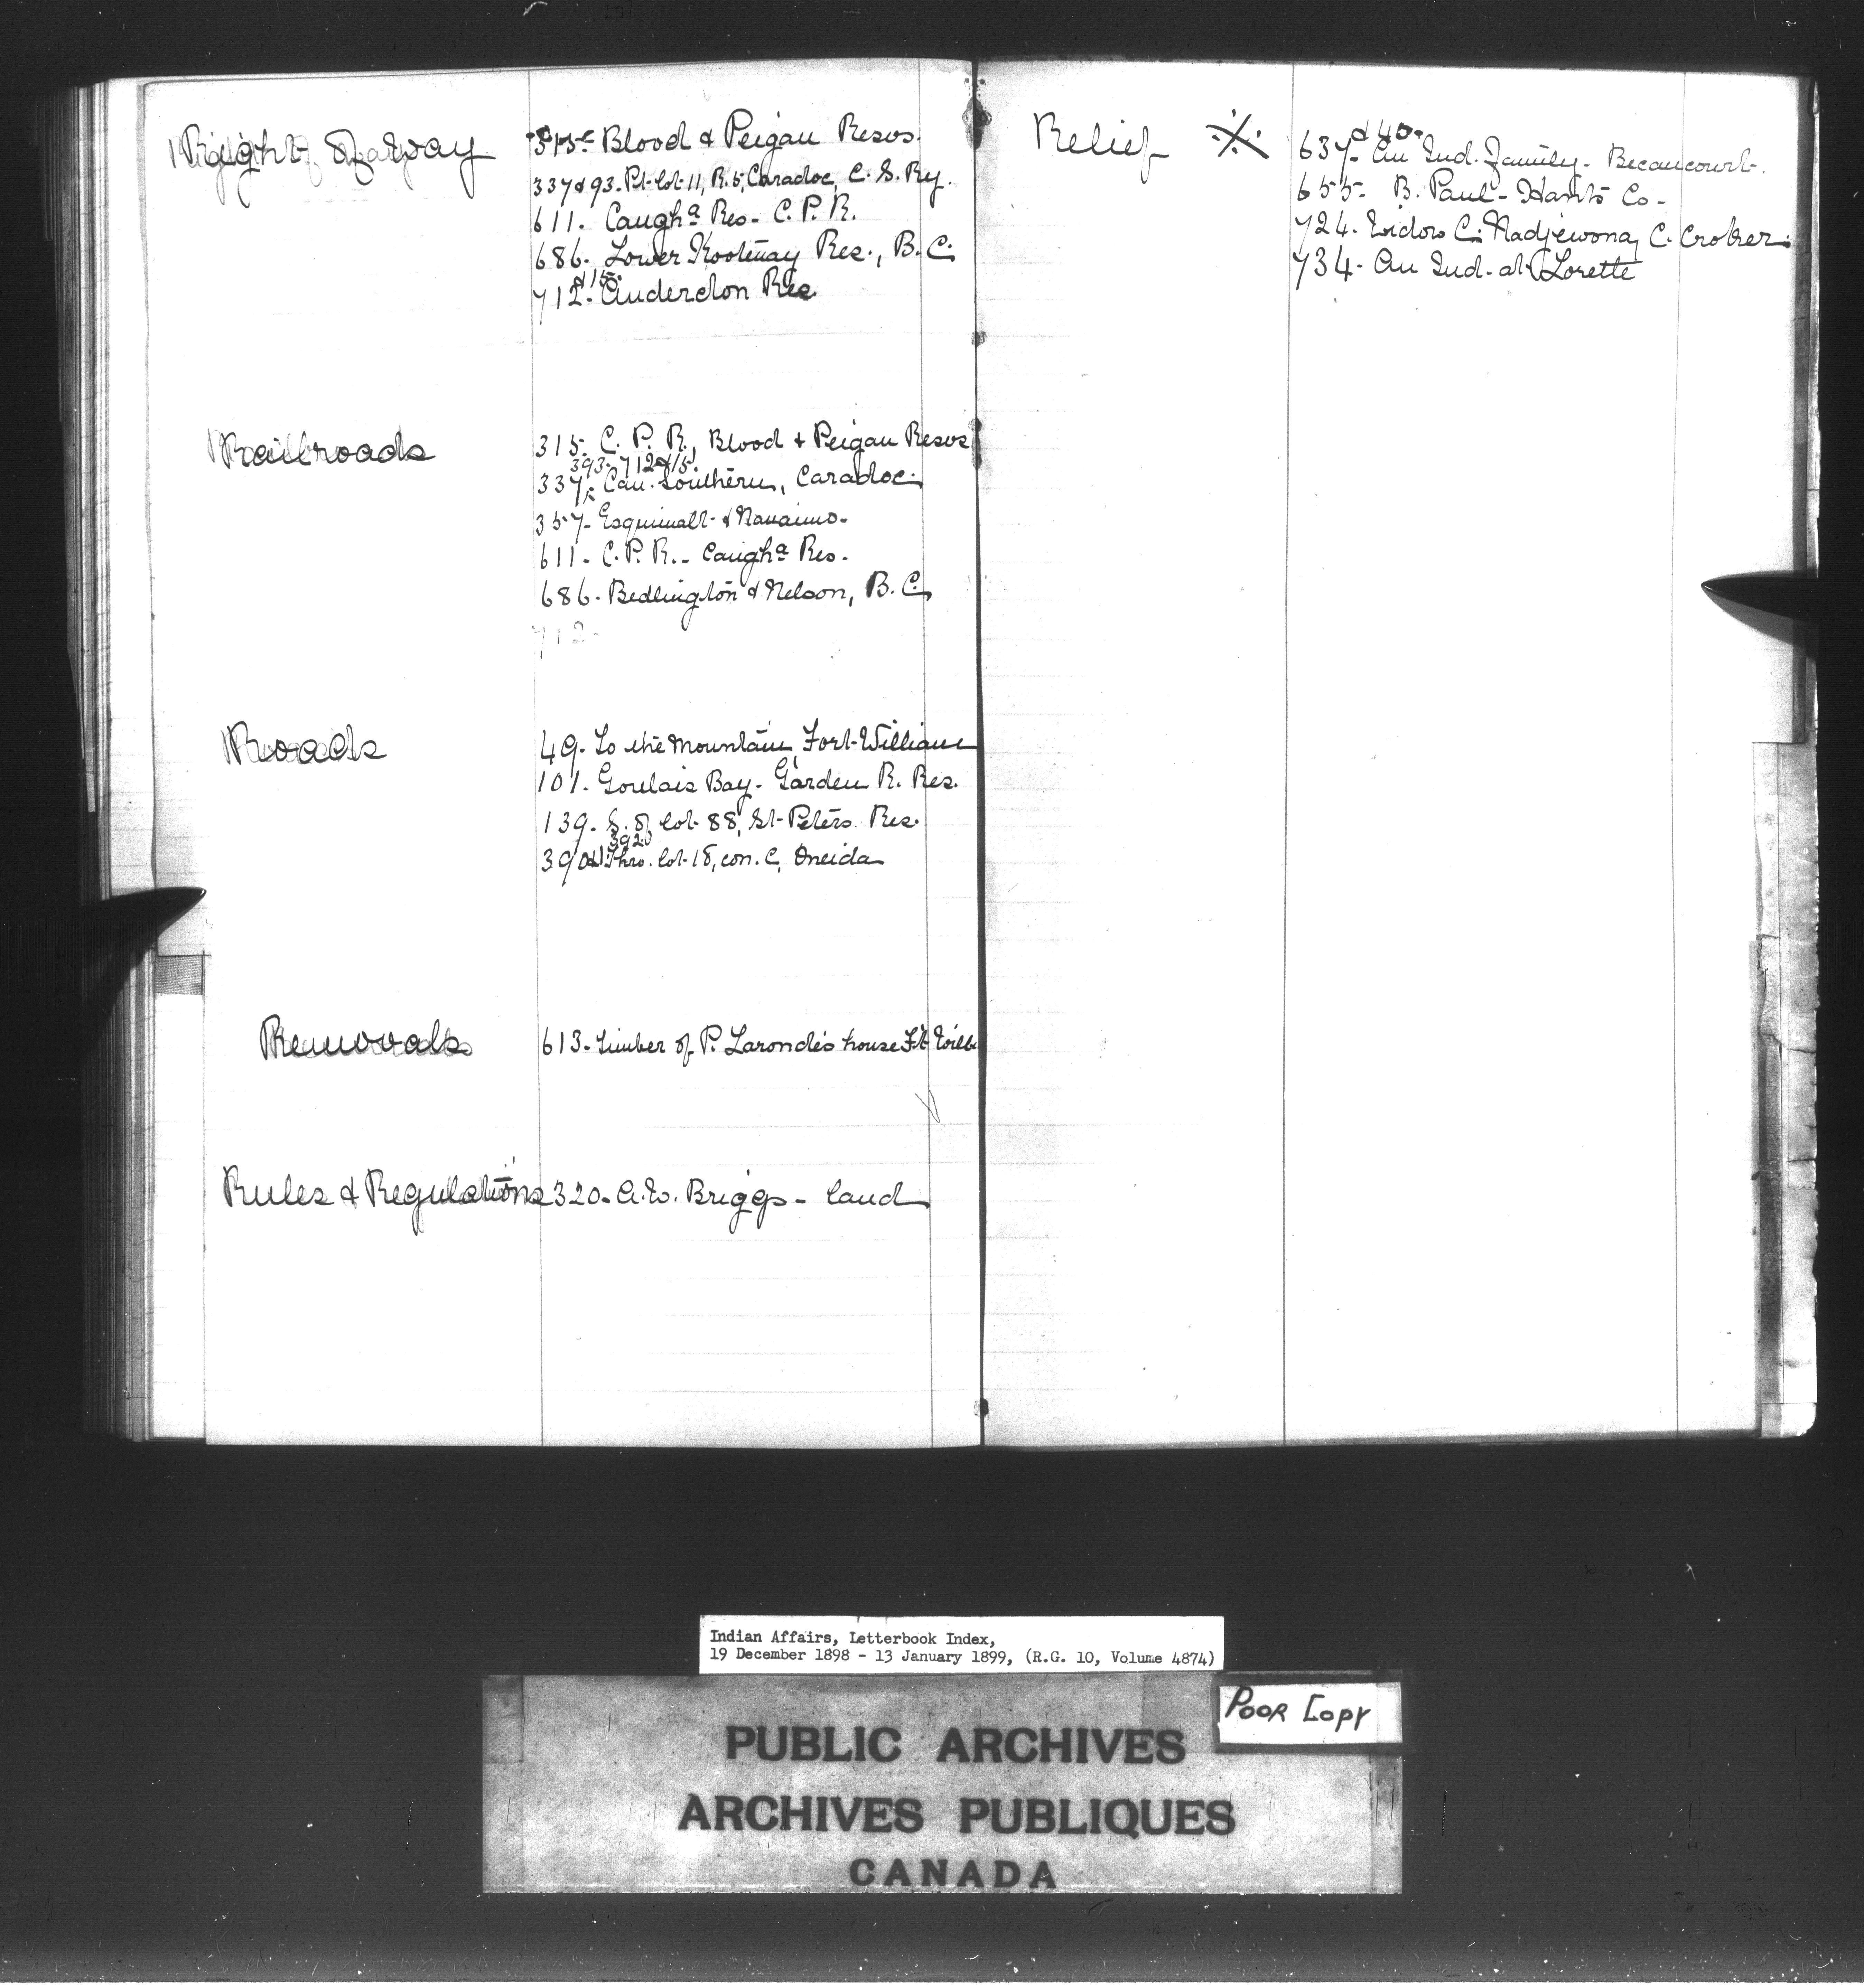 Right of way
315- Blood & Peigan Resvs.
337 & 93. Pt. lot 11, R. 5, Caradoc, C. S. Ry.
611. Caugh<sup>a</sup> Res- C. P. R.
686. Lower Kootenay Res., B. C.
& 15.
712. Anderdon Res.
Railroads
315. C. P. R., Blood & Peigan Resvs
393. 712 & 15.
337. Can. Southern, Caradoc.
357- Esquimalt & Nanaimo.
611. C. P. R.. Caugh<sup>a</sup> Res.
686. Bedlington & Nelson, B. C.
712.
Roads
49. To the Mountain, Fort William
101. Goulais Bay. Garden R. Res.
139. S. of lot 88, St. Peters Res.
392
390 & 1. Thro. lot 18, con. C, Oneida
Removals
613. Timber of P. Laronde's house Ft.
Rules & Regulations
320. A. W. Briggs - land
Relief
& 40.
637. An Ind. Family. Becancourt.
655. B. Paul - Hants Co-
724. Widow C. Nadjewong, C. Croker.
734. An Ind. at Lorette
Indian Affairs, Letterbook Index,
19 December 1898 - 13 January 1899, (R.G. 10, Volume 4874)
POOR COPY
PUBLIC ARCHIVES
ARCHIVES PUBLIQUES
CANADA